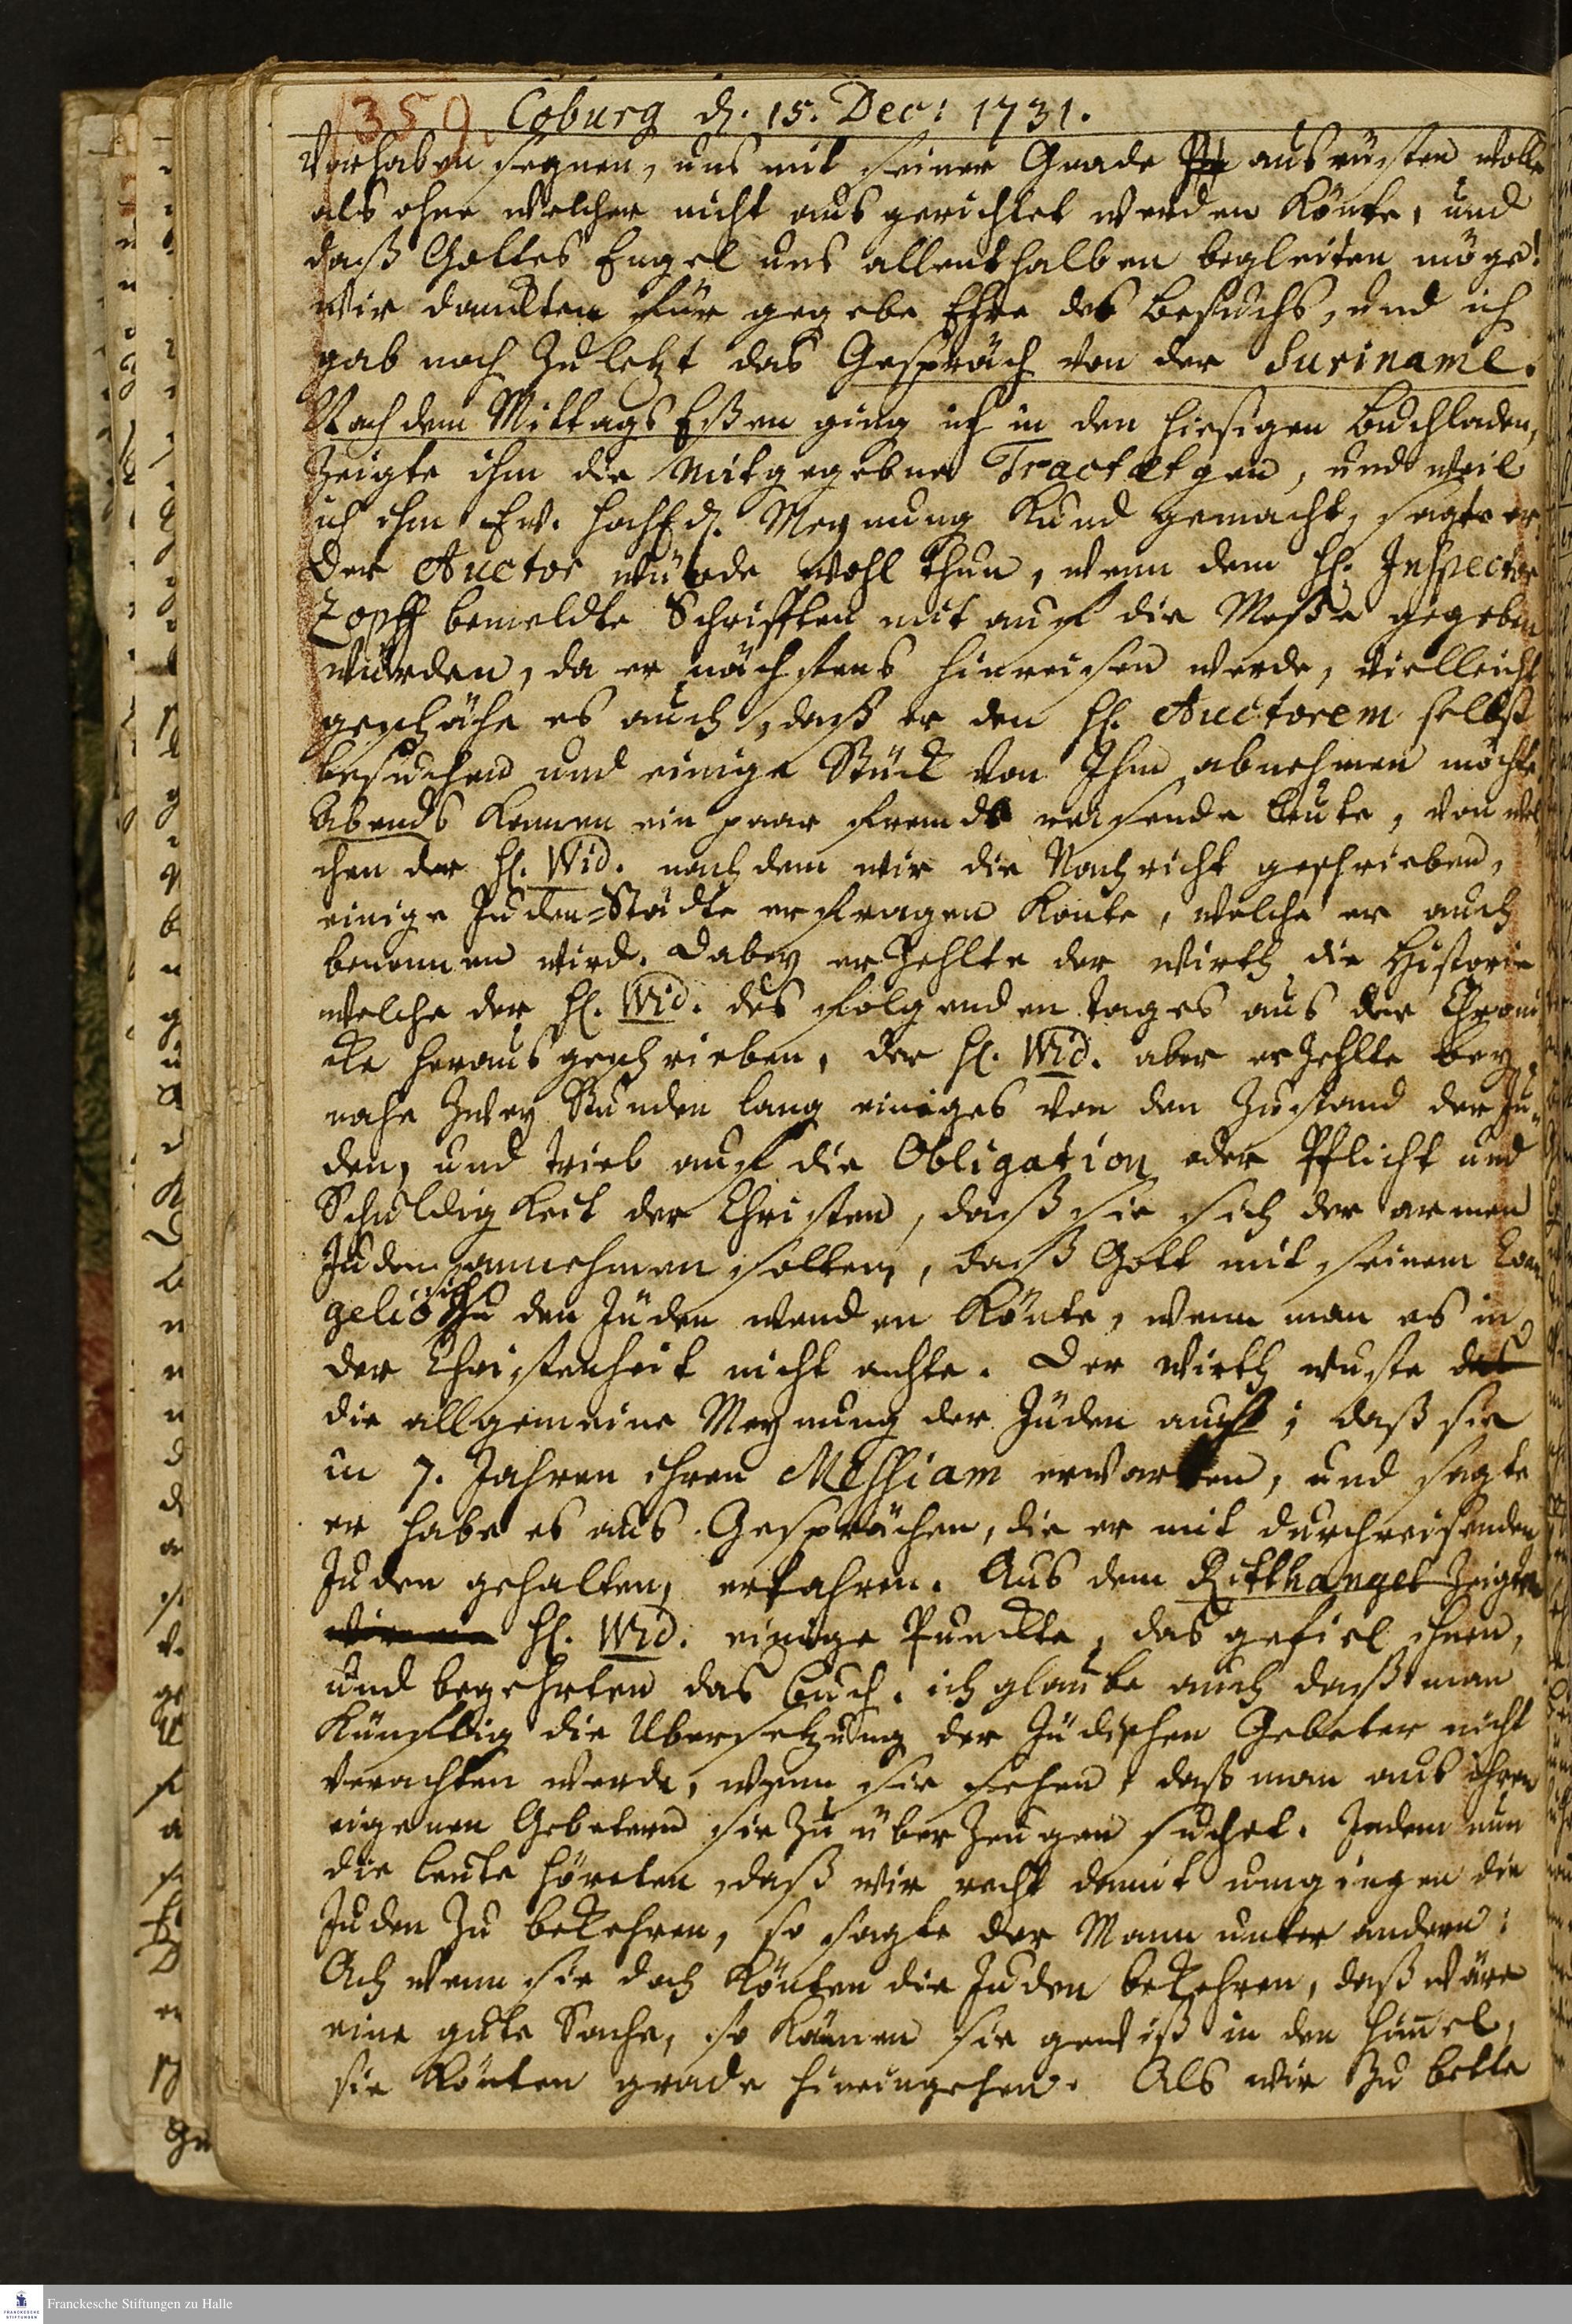 359. Coburg d. 15. Dec: 1731.
Vorhaben segnen, uns mit seiner Gnade ausrüsten wolle
als ohne welcher nicht ausgerichtet werden könte, und
daß Gottes Engel uns allenthalben begleiten möge!
Wir danckten für gegebe Ehre des Besuchs, und ich
gab noch zuletzt das Gespräch von der Suriname.
Nach dem Mittags Eßen ging ich in den hiesigen Buchladen,
zeigte ihm die mitgegebne Tractætgen, und weil
ich ihm Ew. HochEd. Meynung kund gemacht, sagte er
Der Auctor würde wohl thun, wenn dem H. Inspector
Zopff bemeldte Schrifften mit auf die Meße gegeben
würden, da er nächstens hinreisen werde, vielleicht
geschähe es auch, daß er den H. Auctorem selbst
besuchen und einige Stück von Ihm abnehmen möchte
Abends kamen ein paar fremde reisende Leute, von wel
chen der H. Wid. nach dem wir die Nachricht geschrieben,
einige Juden-Städte erfragen konte, welche er auch
benennen wird. Dabey erzehlte der Wirth die Historie
welche der H. Wid. des folgenden tages aus der Chroni
cke herausgeschrieben, der H. Wid. aber erzehlte bey
nahe zwey Stunden lang einiges von den Zustand der Ju-
den, und trieb auf die Obligation oder Pflicht und
Schuldigkeit der Christen, daß sie sich der armen
Juden annehmen solten, daß Gott mit seinem Evan
gelio sich zu den Juden wenden könte, wenn man es in
der Christenheit nicht achte. Der Wirth wuste das
die allgemeine Meynung der Juden auch; daß sie
in 7. Jahren ihren Messiam erwarten, und sagte
er habe es aus Gesprächen, die er mit durchreisenden
Juden gehalten, erfahren. Aus dem Ritthangel zeigte
H. Wid. einige Punckte, das gefiel ihnen,
und begehrten das Buch. ich glaube auch daß man
Künfftig die Ubersetzung der Jüdischen Gebeter nicht
verachten werde, wenn sie sehen, daß man aus ihren
eigenen Gebetern sie zu überzeugen suchet. Indem nun
die Leute höreten, daß wir recht damit umgingen die
Juden zu bekehren, so sagte der Mann unter andern:
Ach wenn sie doch könten die Juden bekehren, daß wäre
eine gute Sache, so kämen sie gewiß in den Himel,
sie könten grade hineingehen. Als wir zu bette
Franckesche Stiftungen zu Halle